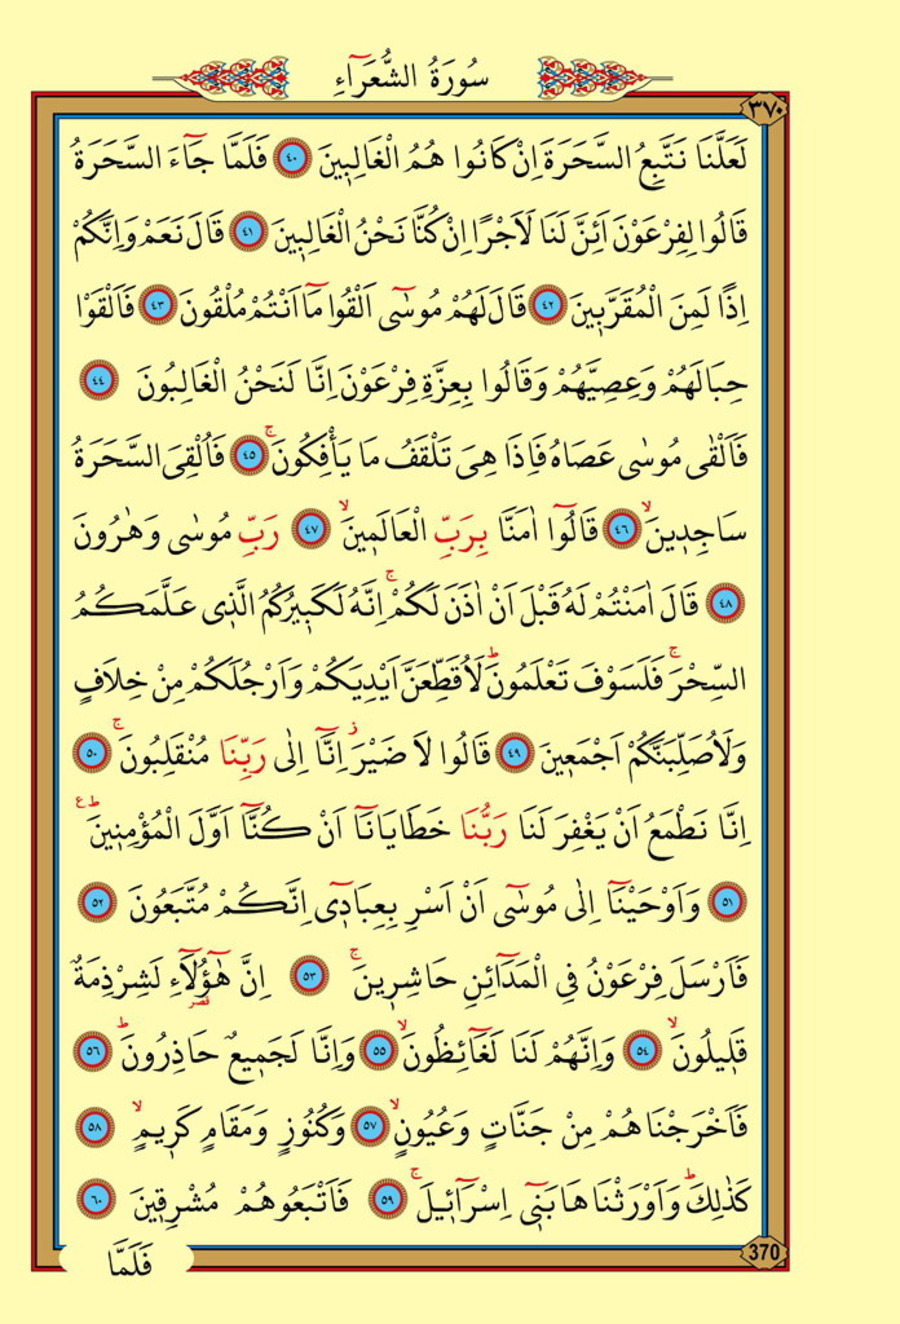 سُورَةُ الشُّعَرَٓاءِ
٣٧٠
لَعَلَّنَا نَتَّبِعُ السَّحَرَةَ اِنْ كَانُوا هُمُ الْغَالِب۪ينَ ﴿٤٠﴾ فَلَمَّا جَٓاءَ السَّحَرَةُ
قَالُوا لِفِرْعَوْنَ اَئِنَّ لَنَا لَاَجْرًا اِنْ كُنَّا نَحْنُ الْغَالِب۪ينَ ﴿٤١﴾ قَالَ نَعَمْ وَاِنَّكُمْ
اِذًا لَمِنَ الْمُقَرَّب۪ينَ ﴿٤٢﴾ قَالَ لَهُمْ مُوسٰٓى اَلْقُوا مَٓا اَنْتُمْ مُلْقُونَ ﴿٤٣﴾ فَاَلْقَوْا
حِبَالَهُمْ وَعِصِيَّهُمْ وَقَالُوا بِعِزَّةِ فِرْعَوْنَ اِنَّا لَنَحْنُ الْغَالِبُونَ ﴿٤٤﴾
فَاَلْقٰى مُوسٰى عَصَاهُ فَاِذَا هِىَ تَلْقَفُ مَا يَأْفِكُونَۚ ﴿٤٥﴾ فَاُلْقِىَ السَّحَرَةُ
سَاجِد۪ينَۙ ﴿٤٦﴾ قَالُٓوا اٰمَنَّا بِرَبِّ الْعَالَم۪ينَۙ ﴿٤٧﴾ رَبِّ مُوسٰى وَهٰرُونَ
﴿٤٨﴾ قَالَ اٰمَنْتُمْ لَهُ قَبْلَ اَنْ اٰذَنَ لَكُمْۚ اِنَّهُ لَكَب۪يرُكُمُ الَّذ۪ى عَلَّمَكُمُ
السِّحْرَۚ فَلَسَوْفَ تَعْلَمُونَۜ لَاُقَطِّعَنَّ اَيْدِيَكُمْ وَاَرْجُلَكُمْ مِنْ خِلَافٍ
وَلَاُصَلِّبَنَّكُمْ اَجْمَع۪ينَ ﴿٤٩﴾ قَالُوا لَا ضَيْرَۘ اِنَّٓا اِلٰى رَبِّنَا مُنْقَلِبُونَۚ ﴿٥٠﴾
اِنَّا نَطْمَعُ اَنْ يَغْفِرَ لَنَا رَبُّنَا خَطَايَانَٓا اَنْ كُنَّٓا اَوَّلَ الْمُؤْمِن۪ينَۜ ع
﴿٥١﴾ وَاَوْحَيْنَٓا اِلٰى مُوسٰٓى اَنْ اَسْرِ بِعِبَاد۪ٓى اِنَّكُمْ مُتَّبَعُونَ ﴿٥٢﴾
فَاَرْسَلَ فِرْعَوْنُ فِى الْمَدَٓائِنِ حَاشِر۪ينَۚ ﴿٥٣﴾ اِنَّ هٰٓؤُ۬لَٓاءِ لَشِرْذِمَةٌ
قَل۪يلُونَۙ ﴿٥٤﴾ وَاِنَّهُمْ لَنَا لَغَٓائِظُونَۙ ﴿٥٥﴾ وَاِنَّا لَجَم۪يعٌ حَاذِرُونَۜ ﴿٥٦﴾
فَاَخْرَجْنَاهُمْ مِنْ جَنَّاتٍ وَعُيُونٍۙ ﴿٥٧﴾ وَكُنُوزٍ وَمَقَامٍ كَر۪يمٍۙ ﴿٥٨﴾
كَذٰلِكَۜ وَاَوْرَثْنَاهَا بَن۪ٓى اِسْرَٓائ۪لَۚ ﴿٥٩﴾ فَاَتْبَعُوهُمْ مُشْرِق۪ينَ ﴿٦٠﴾
370
فَلَمَّا